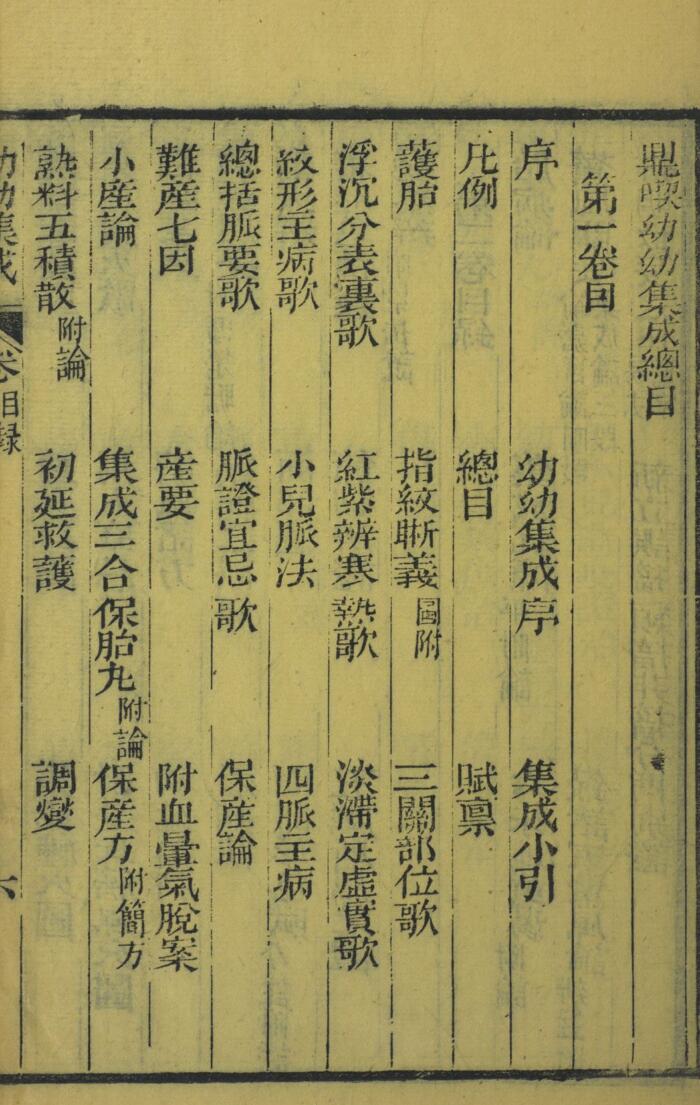 鼎鍥幼幼集成總目
第一卷目
序 幼幼集成序 集成小引
凡例 總目 賦稟
護胎 指紋晣義 圖附 三關部位歌
浮沉分表裏歌 紅紫辨寒熱歌 淡滯定虛實歌
紋形主病歌 小兒脈法 四脈主病
總括脈要歌 脈證宜忌歌 保産論
難産七因 産要 附血暈氣脫案
小産論 集成三合保胎丸 附論 保産方 附簡方
熟料五積散 附論 初延救護 調變
幼幼集成 卷一目録 六